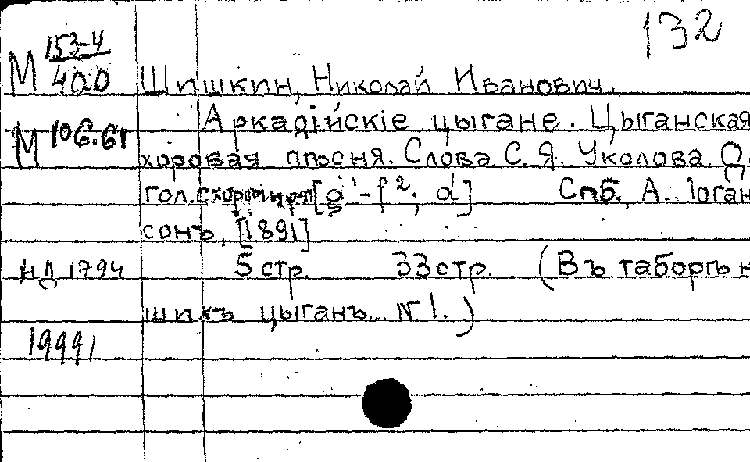 132
М 153-4/400 Шишкин, Николай Иванович.
М 106.61 Аркадійскіе цыгане. Цыганская
хоровая пѣсня. Слова С. Я. Уколова. Д
гол. с хор [g¹-f²; d¹] Спб., А. Іоган
сонъ, [1891]
НД 1794 5 стр. 33 стр. (Въ таборѣ н
шихъ цыганъ. №1.)
19991